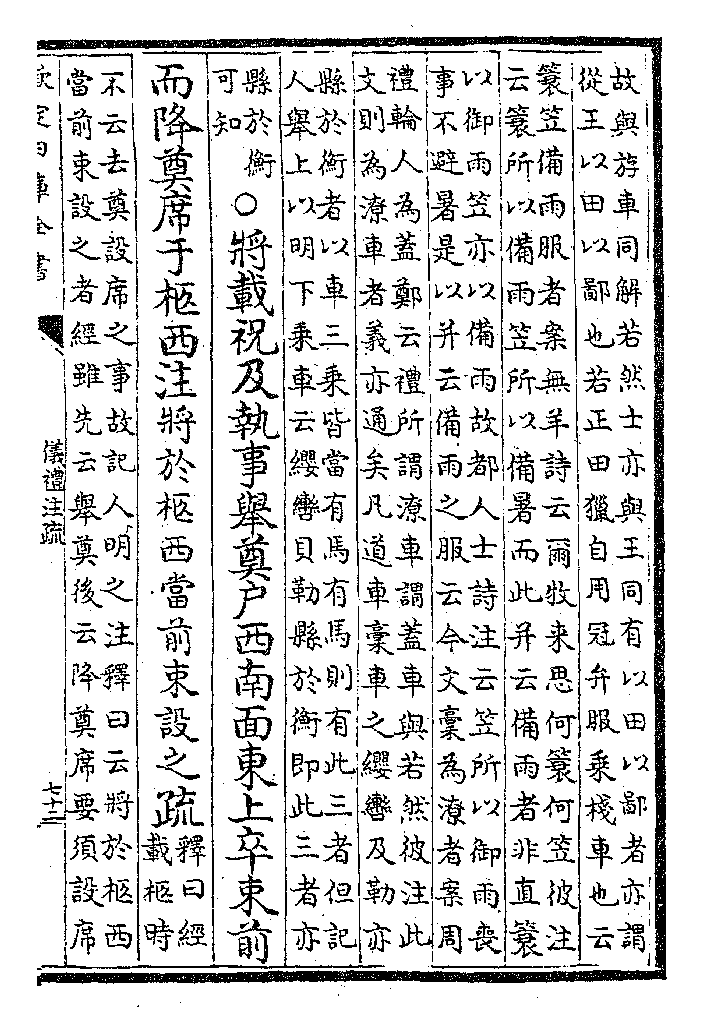 故與斿車同解若然士亦與王同有以田以鄙者亦謂
從王以田以鄙也若正田獵自用冠弁服乗棧車也云
簑笠備雨服者案無羊詩云爾牧来思何簑何笠彼注
云簑所以備雨笠所以備暑而此并云備雨者非直簑
以御雨笠亦以備雨故都人士詩注云笠所以御雨喪
事不避暑是以并云備雨之服云今文藁為潦者案周
禮輪人為蓋鄭云禮所謂潦車謂蓋車與若然彼注此
文則為潦車者義亦通矣凡道車藁車之纓轡及勒亦
縣於衡者以車三乗皆當有馬有馬則有此三者但記
人舉上以明下乗車云纓轡貝勒縣於衡即此三者亦
縣於衡
可知
○將載祝及執事舉奠户西南面東上卒束前
而降奠席于柩西注將於柩西當前束設之疏
釋曰經
載柩時
不云去奠設席之事故記人明之注釋曰云將於柩西
當前束設之者經雖先云舉奠後云降奠席要須設席
欽定四庫全書
儀禮注疏
七十二